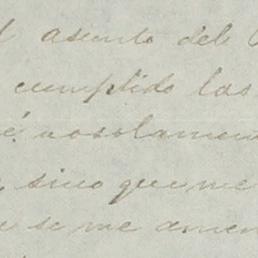 asunto del
cumplido las
no solamen
sino que me
se me